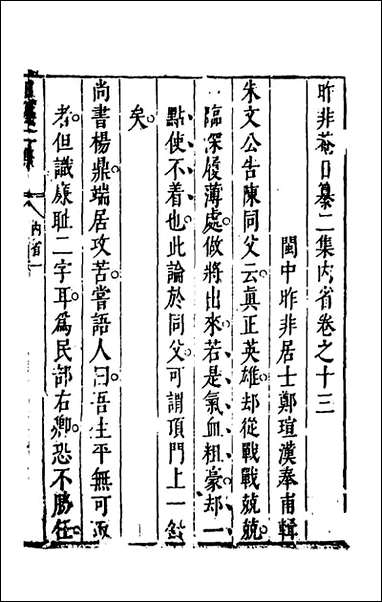 昨非菴日纂二集內省卷之十三
閩中昨非居士鄭瑄漢奉甫輯
朱文公告陳同父云真正英雄却從戰戰兢兢
臨深履薄處做將出來若是氣血粗豪却一
點使不着也此論於同父可謂頂門上一
矣
尚書楊鼎端居攻苦嘗語人曰吾生平無可取
者但識廉耻二字耳爲民部右卿恐不勝任
內省